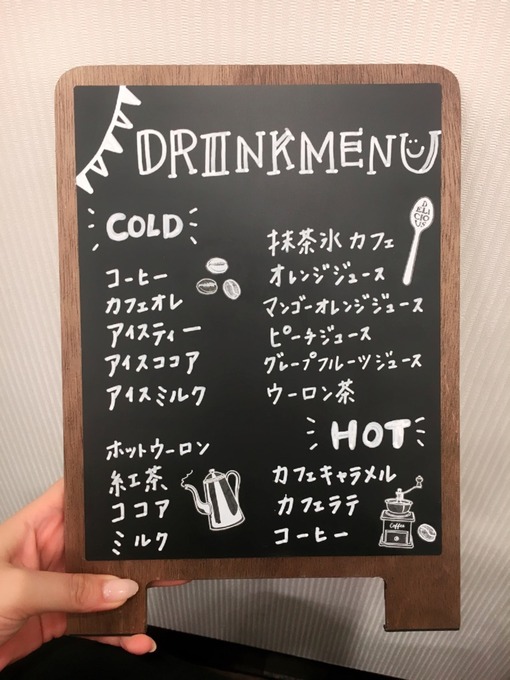 DRINKMENU
DELICIOUS
COLD
コーヒー
カフェオレ
アイスティー
アイスココア
アイスミルク
抹茶氷カフェ
オレンジジュース
マンゴーオレンジジュース
ピーチジュース
グレープフルーツジュース
ウーロン茶
HOT
ホットウーロン
紅茶
ココア
ミルク
カフェキャラメル
カフェラテ
コーヒー
Coffee